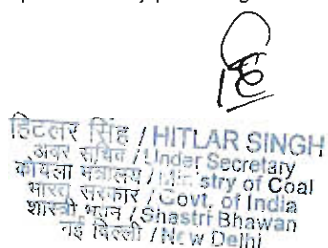 हिटलर सिंह / HITLAR SINGH
अवर सचिव / Under Secretary
कोयला मंत्रालय / Ministry of Coal
भारत सरकार / Govt. of India
शास्त्री भवन / Shastri Bhawan
नई दिल्ली / New Delhi